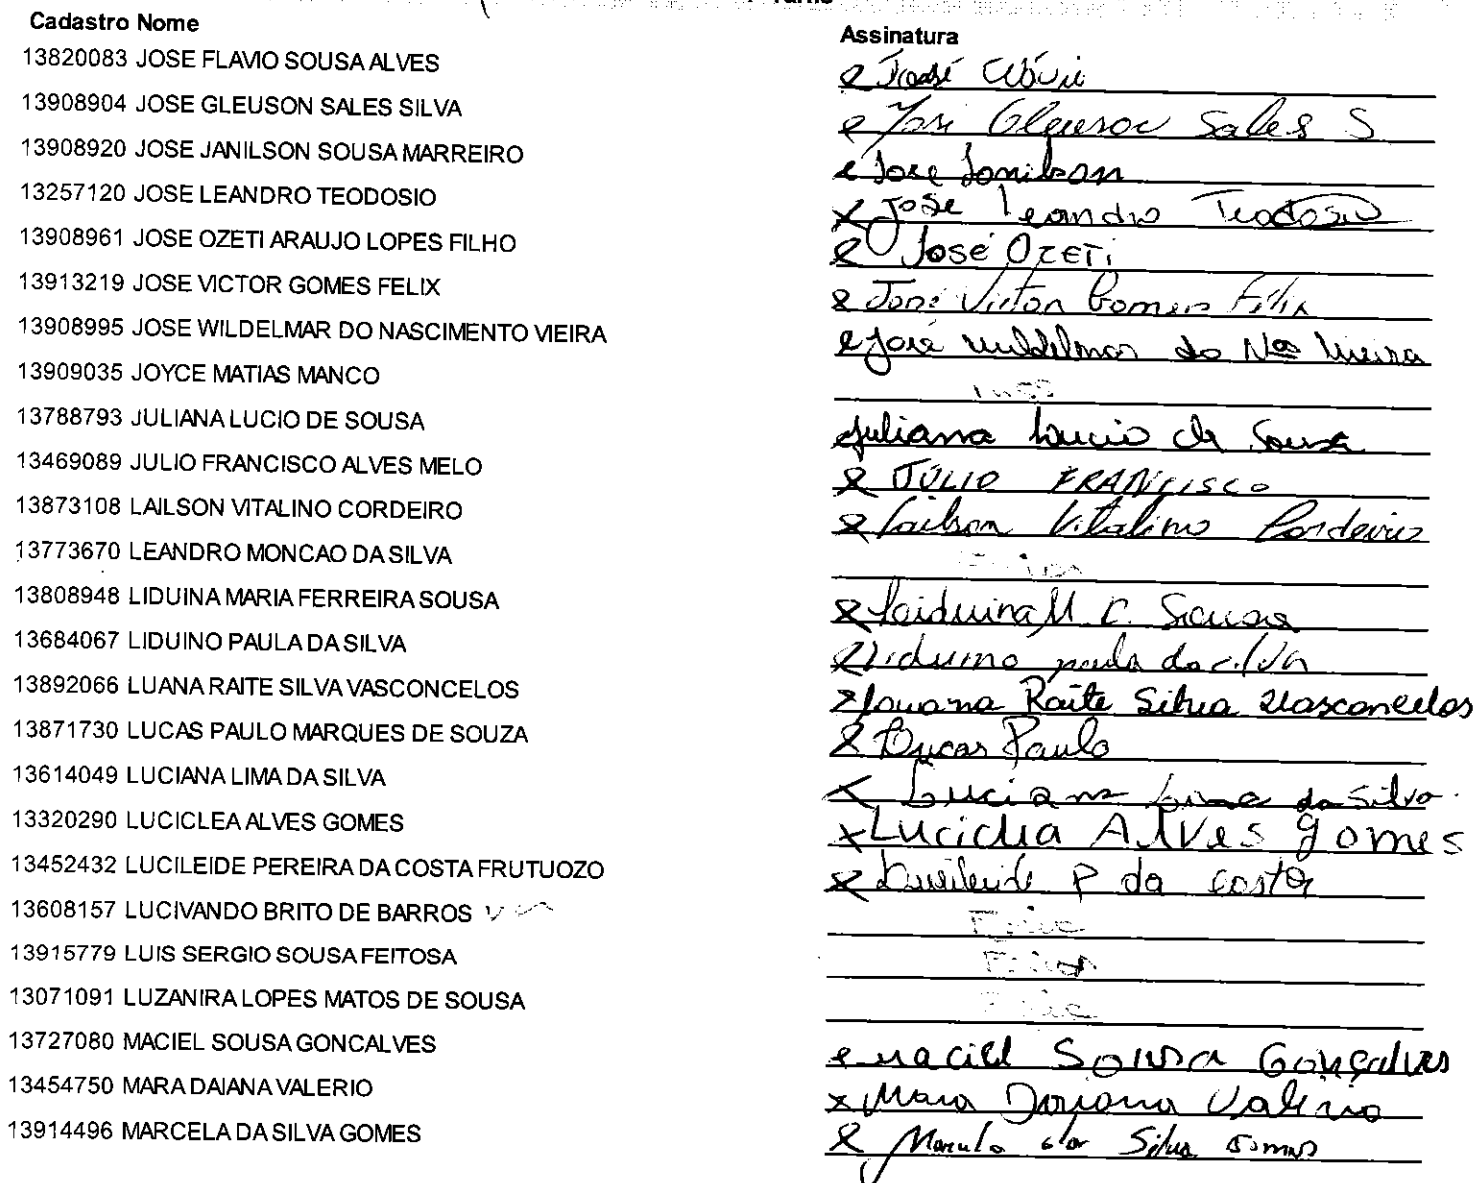 Cadastro Nome Assinatura
13820083 JOSE FLAVIO SOUSA ALVES José
13908904 JOSE GLEUSON SALES SILVA José Gleuson Sales S
13908920 JOSE JANILSON SOUSA MARREIRO Jose Janilson
13257120 JOSE LEANDRO TEODOSIO Jose Leandro Teodosio
13908961 JOSE OZETI ARAUJO LOPES FILHO José OZETi
13913219 JOSE VICTOR GOMES FELIX José Victor Gomes Felix
13908995 JOSE WILDELMAR DO NASCIMENTO VIEIRA José Wildelmar do Nas Vieira
13909035 JOYCE MATIAS MANCO
13788793 JULIANA LUCIO DE SOUSA Juliana Lucio de Sousa
13469089 JULIO FRANCISCO ALVES MELO JÚLIO FRANCISCO
13873108 LAILSON VITALINO CORDEIRO Lailson Vitalino Cordeiro
13773670 LEANDRO MONCAO DA SILVA
13808948 LIDUINA MARIA FERREIRA SOUSA Leiduina M Sousa
13684067 LIDUINO PAULA DA SILVA Liduino paula da silva
13892066 LUANA RAITE SILVA VASCONCELOS Louana Raite Silva Vasconcelos
13871730 LUCAS PAULO MARQUES DE SOUZA Lucas Paulo
13614049 LUCIANA LIMA DA SILVA Luciana Lima da Silva
13320290 LUCICLEA ALVES GOMES Luciclea Alves Gomes
13452432 LUCILEIDE PEREIRA DA COSTA FRUTUOZO Lucileide P da Costa
13608157 LUCIVANDO BRITO DE BARROS
13915779 LUIS SERGIO SOUSA FEITOSA
13071091 LUZANIRA LOPES MATOS DE SOUSA
13727080 MACIEL SOUSA GONCALVES Maciel Sousa Gonçalves
13454750 MARA DAIANA VALERIO Mara Daiana Valerio
13914496 MARCELA DA SILVA GOMES Marcela da Silva Gomes